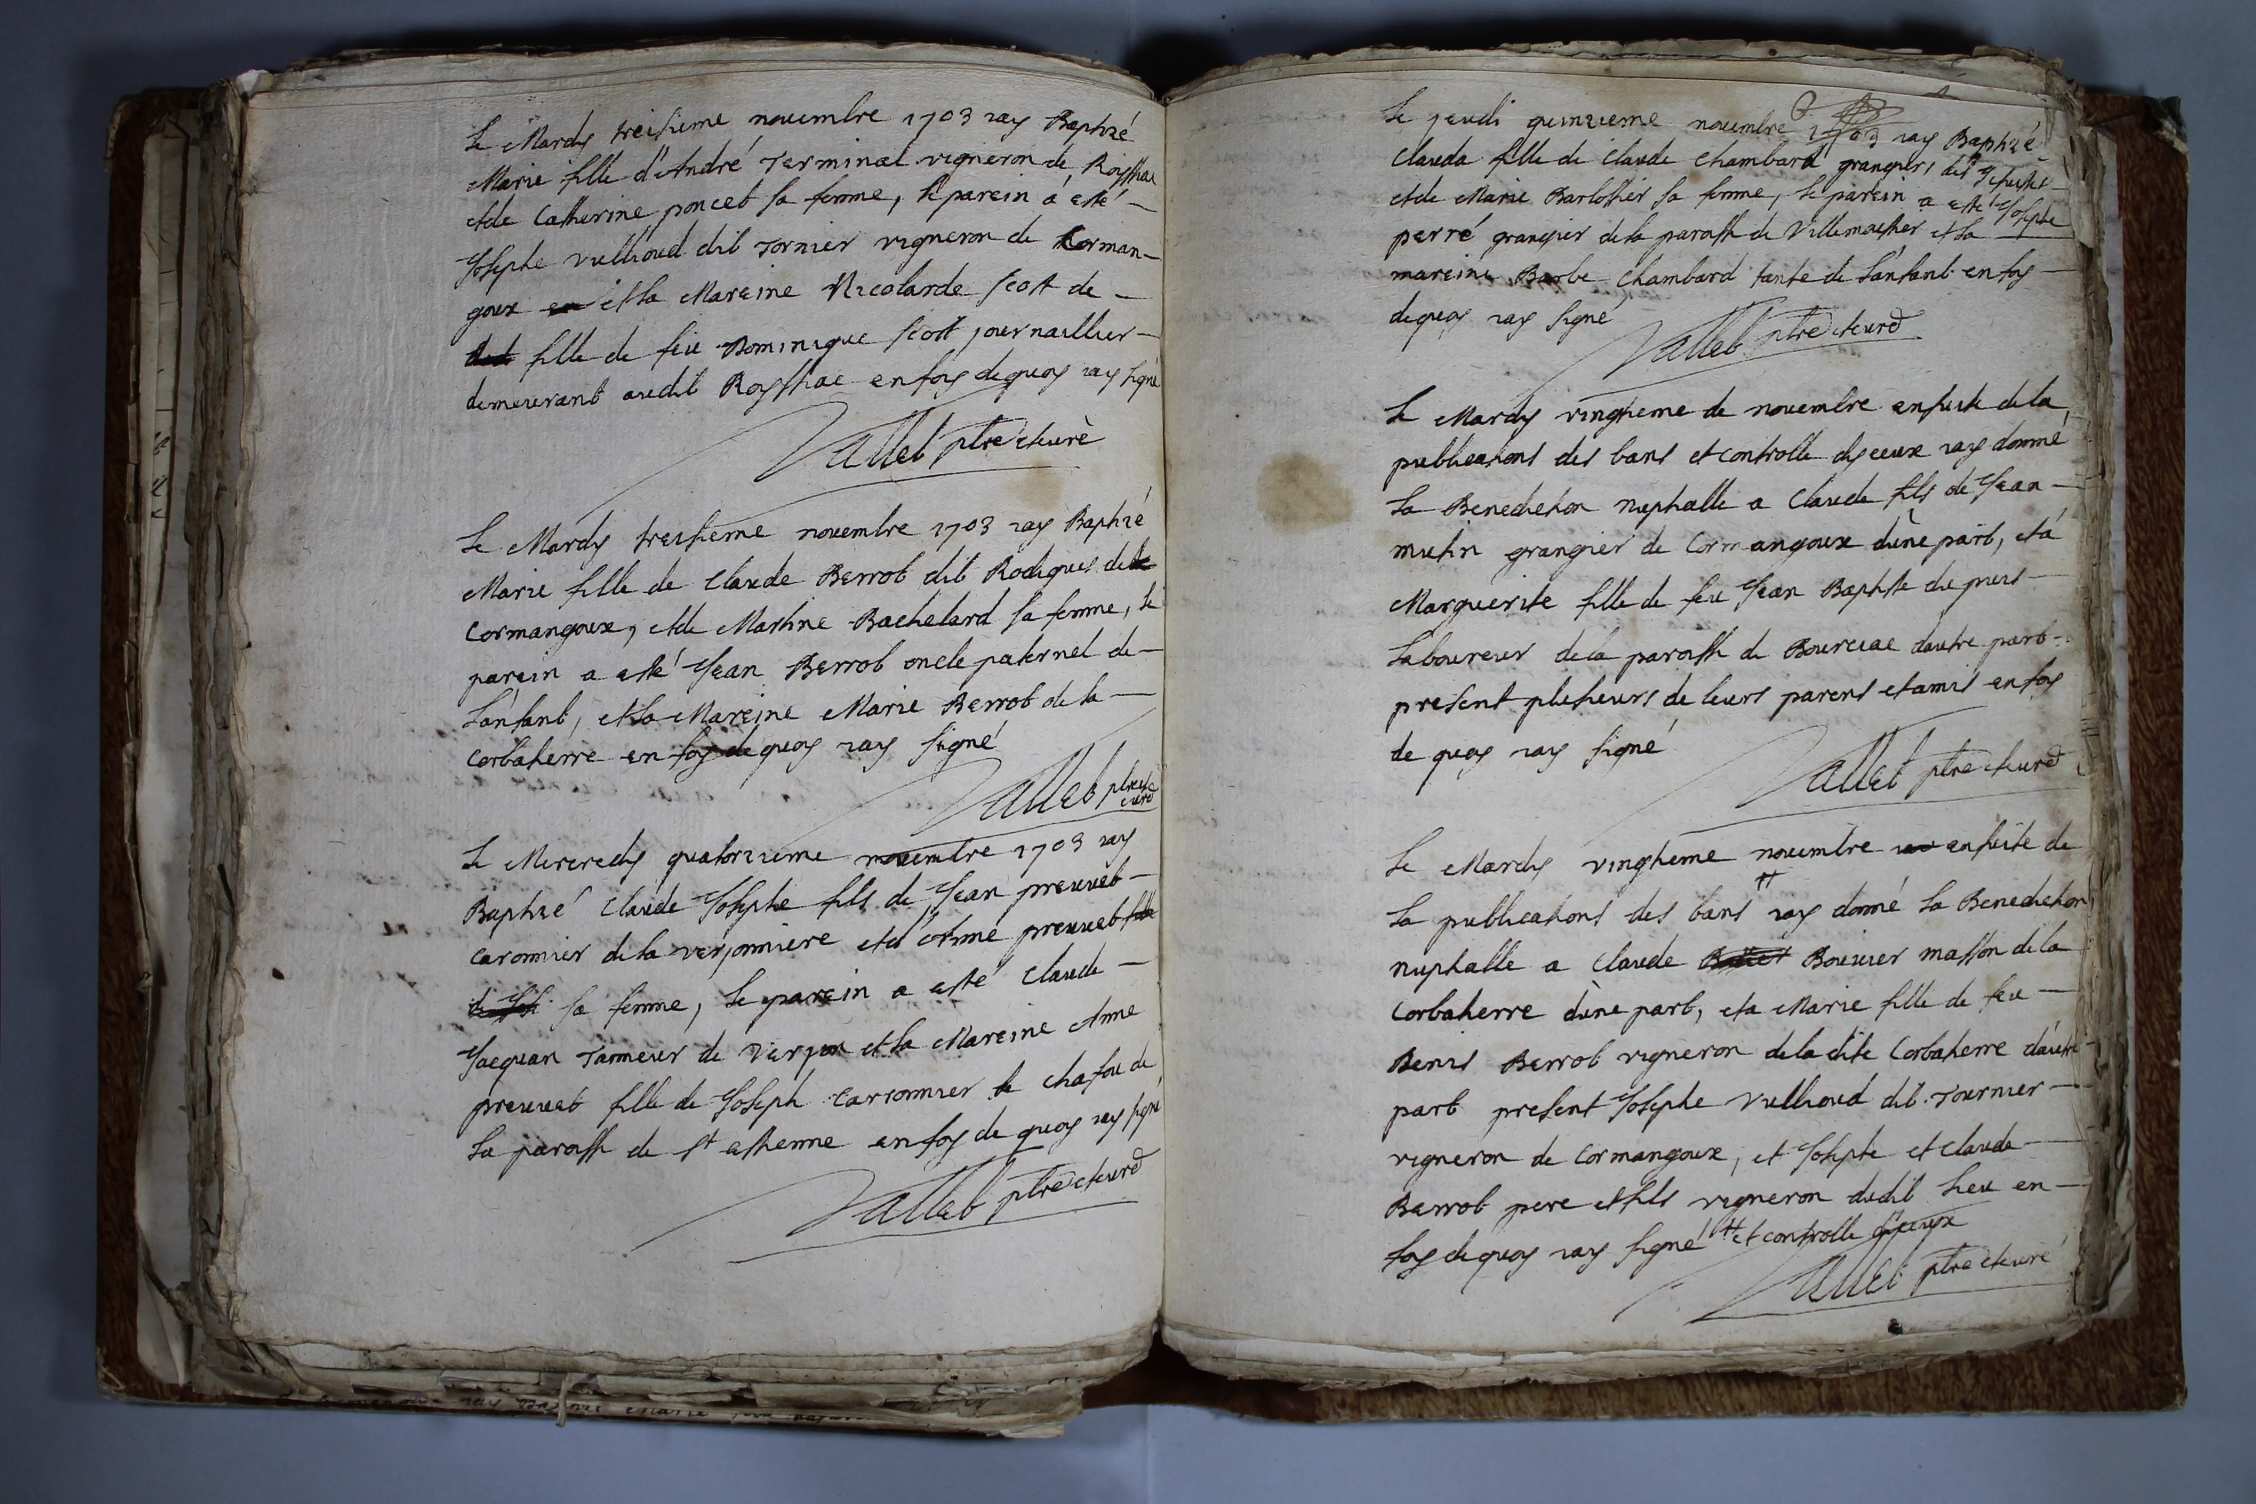 Le Mardy treisieme novembre 1703 iay Baptizé
Marie fille d'André Terminal vigneron de Royssiac
et de Catherine poncet sa femme, le parein á esté
Josephe vullioud dit Tornier vigneron de Corman-
goux et la Mareine Nicolarde
fille de feu Dominique journaillier
demeurant audit Royssiac en foy de quoy iay signé
Vallet ptre et curé
Le Mardy treisieme novembre 1703 iay Baptizé
Marie fille de Claude Berrod dit Rodigues de
Cormangoux, et de Martine Bachelard sa femme, le
parein a esté Jean Berrod oncle paternel de
l'anfant, et la Mareine Marie Berrod de la
Corbatierre en foy de quoy iay signé
Vallet ptre et curé
Le Mercredy quatorzieme novembre 1703 iay
Baptizé Claude Josephe fils de Jean preuvet
caronnier de la verjonniere et d'Anne preuvet
sa femme, le parein a esté Claude
Jacquan Tanneur de Verjon et la Mareine Anne
preuvet fille de Joseph Carronnier de
la paroisse de st estienne en foy de quoy iay signé
Vallet ptre et curé
Le jeudi quinzieme novembre 1703 iay Baptizé
Clauda fille de Claude Chambard grangiers des Jesuistes
et de Marie Barlothier sa femme, le parein a esté Josephe
perré grangier de la paroisse de Villemoustier et la
mareine Barbe Chambard tante de l'anfant en foy
de quoy iay signé
Vallet ptre et curé
Le Mardy vingtieme de novembre ensuite de la
publications des bans et controlle dyceux iay donné
la Benediction nuptialle a Claude fils de Jean
mutin grangier de Cormangoux dùne part, et á
Marguerite fille de feu Jean Baptiste du puis
laboureur de la paroisse de Bourciac dautre part
present plusieurs de leurs parens et amis en foy
de quoy iay signé
Vallet ptre et curé
Le Mardy vingtieme novembre ensuite de
la publications des bans # iay donné la Benediction
nuptialle a Claude Bouvier masson de la
Corbatierre dùne part, et a Marie fille de feu
Denis Berrod vigneron de la dite Corbatierre d'autre
part present Josephe vullioud dit Tournier
vigneron de Cormangoux, et Josephe et Claude
Berrod pere et fils vigneron dudit lieu en
foy de quoy iay signé # et controlle dyceux
Vallet ptre et curé